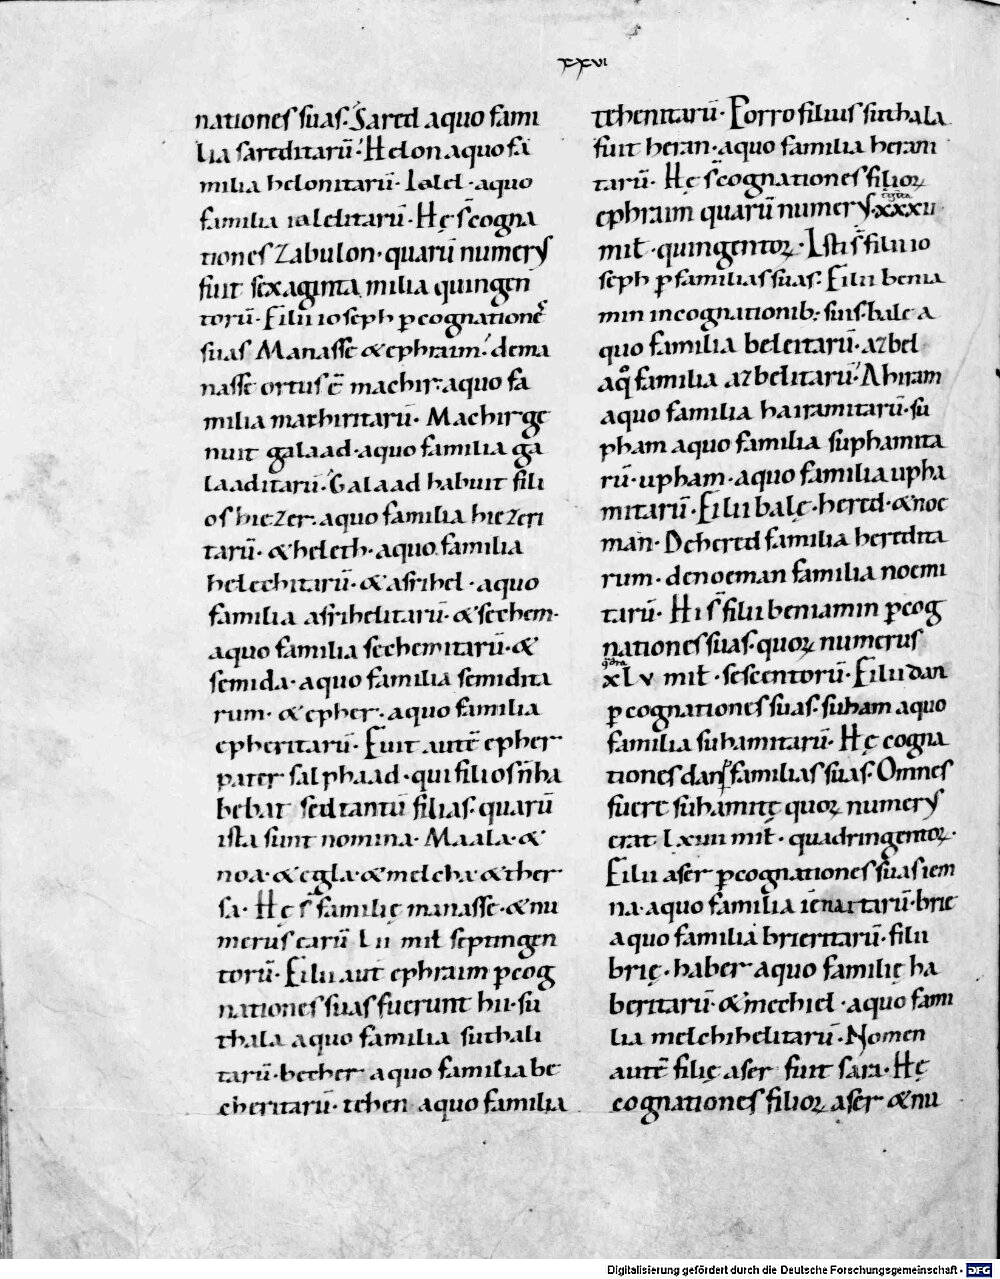 xxvi
nationes suas. Sared a quo fami
lia sareditarū. Helon a quo fa
milia helonitarū. Ialel. a quo
familia ialelitarū. Hę s̄ cogna
tiones Zabulon. quarū numerꝰ
fuit sexaginta milia quingen
torū. Filii ioseph ꝑ cognationē
suas Manasse & ephraim. de ma
nasse ortus ē machir. a quo fa
milia machiritarū. Machir ge
nuit galaad. a quo familia ga
laaditarū. Galaad habuit fili
os hiezer. a quo familia hiezeri
tarū. & helech. a quo familia
helechitarū. & asrihel. a quo
familia asrihelitarū. & sechem.
a quo familia sechemitarū. &
semida. a quo familia semidita
rum. & epher. a quo familia
epheritarū. Fuit autē epher
pater salphaad. qui filios n̄ ha
bebat sed tantū filias. quarū
ista sunt nomina. Maala. &
noa. & egla. & melcha. & ther
sa. Hę s̄ familię manasse. & nu
merus earū lii mił septingen
torū. Filii aut ephraim ꝑ cog
nationes suas fuerunt hii. su
thala a quo familia suthali
tarū. becher a quo familia be
cheritarū. tehen a quo familia
tehenitarū. Porro filius suthala
fuit heran. a quo familia herani
tarū. Hę s̄ cognationes filioꝝ
ephraim quarū numerꝰ. xxxii
mił. quingentoꝝ. Isti s̄ filii io
seph ꝑ familias suas. Filii benia
min in cognationib; suis. bale a
quo familia beleitarū. azbel
a qͦ familia azbelitarū. Ahiram
a quo familia hairamitarū. su
pham a quo familia suphamita
rū. upham. a quo familia upha
mitarū. Filii balę. hered. & noe
man. De hered familia heredita
rum. de noeman familia noemi
tarū. Hi s̄ filii beniamin ꝑ cog
nationes suas. quoꝝ numerus
xlv mił. sescentorū. Filii dan
ꝑ cognationes suas. suham a quo
familia suhamitarū. Hę cogna
tiones dan ꝑ familias suas. Omnes
fuere suhamitę quoꝝ numerꝰ
erat lxiiii mił. quadringentoꝝ.
Filii aser ꝑ cognationes suas iem
na. a quo familia iēnaitarū. brie
a quo familia brieritarū. filii
brię. haber a quo familię ha
beritarū. & mechiel. a quo fami
lia melchihelitarū. Nomen
autē filię aser fuit sara. Hę
cognationes filioꝝ aser & nu
Digitalisierung gefördert durch die Deutsche Forschungsgemeinschaft - DFG